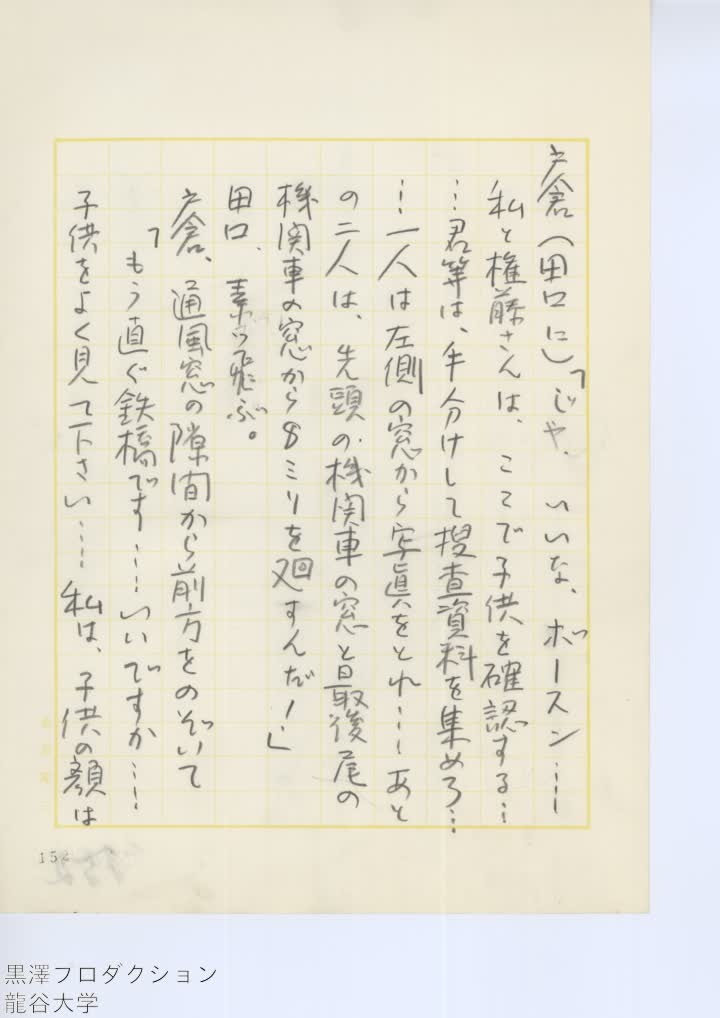 戸倉(田口に)「じや、いいな、ボースン……
私と権藤さんは、ここで子供を確認する…
…君等は、手分けして捜査資料を集めろ…
…一人は左側の窓から写眞をとれ……あと
の二人は、先頭の機関車の窓と最後尾の
機関車の窓から8ミリを廻すんだ!」
田口、素ッ飛ぶ。
戸倉、通風窓の隙間から前方をのぞいて
「もう直ぐ鉄橋です……いいですか……
子供をよく見て下さい……私は、子供の顔は
152
黒澤プロダクション
龍谷大学